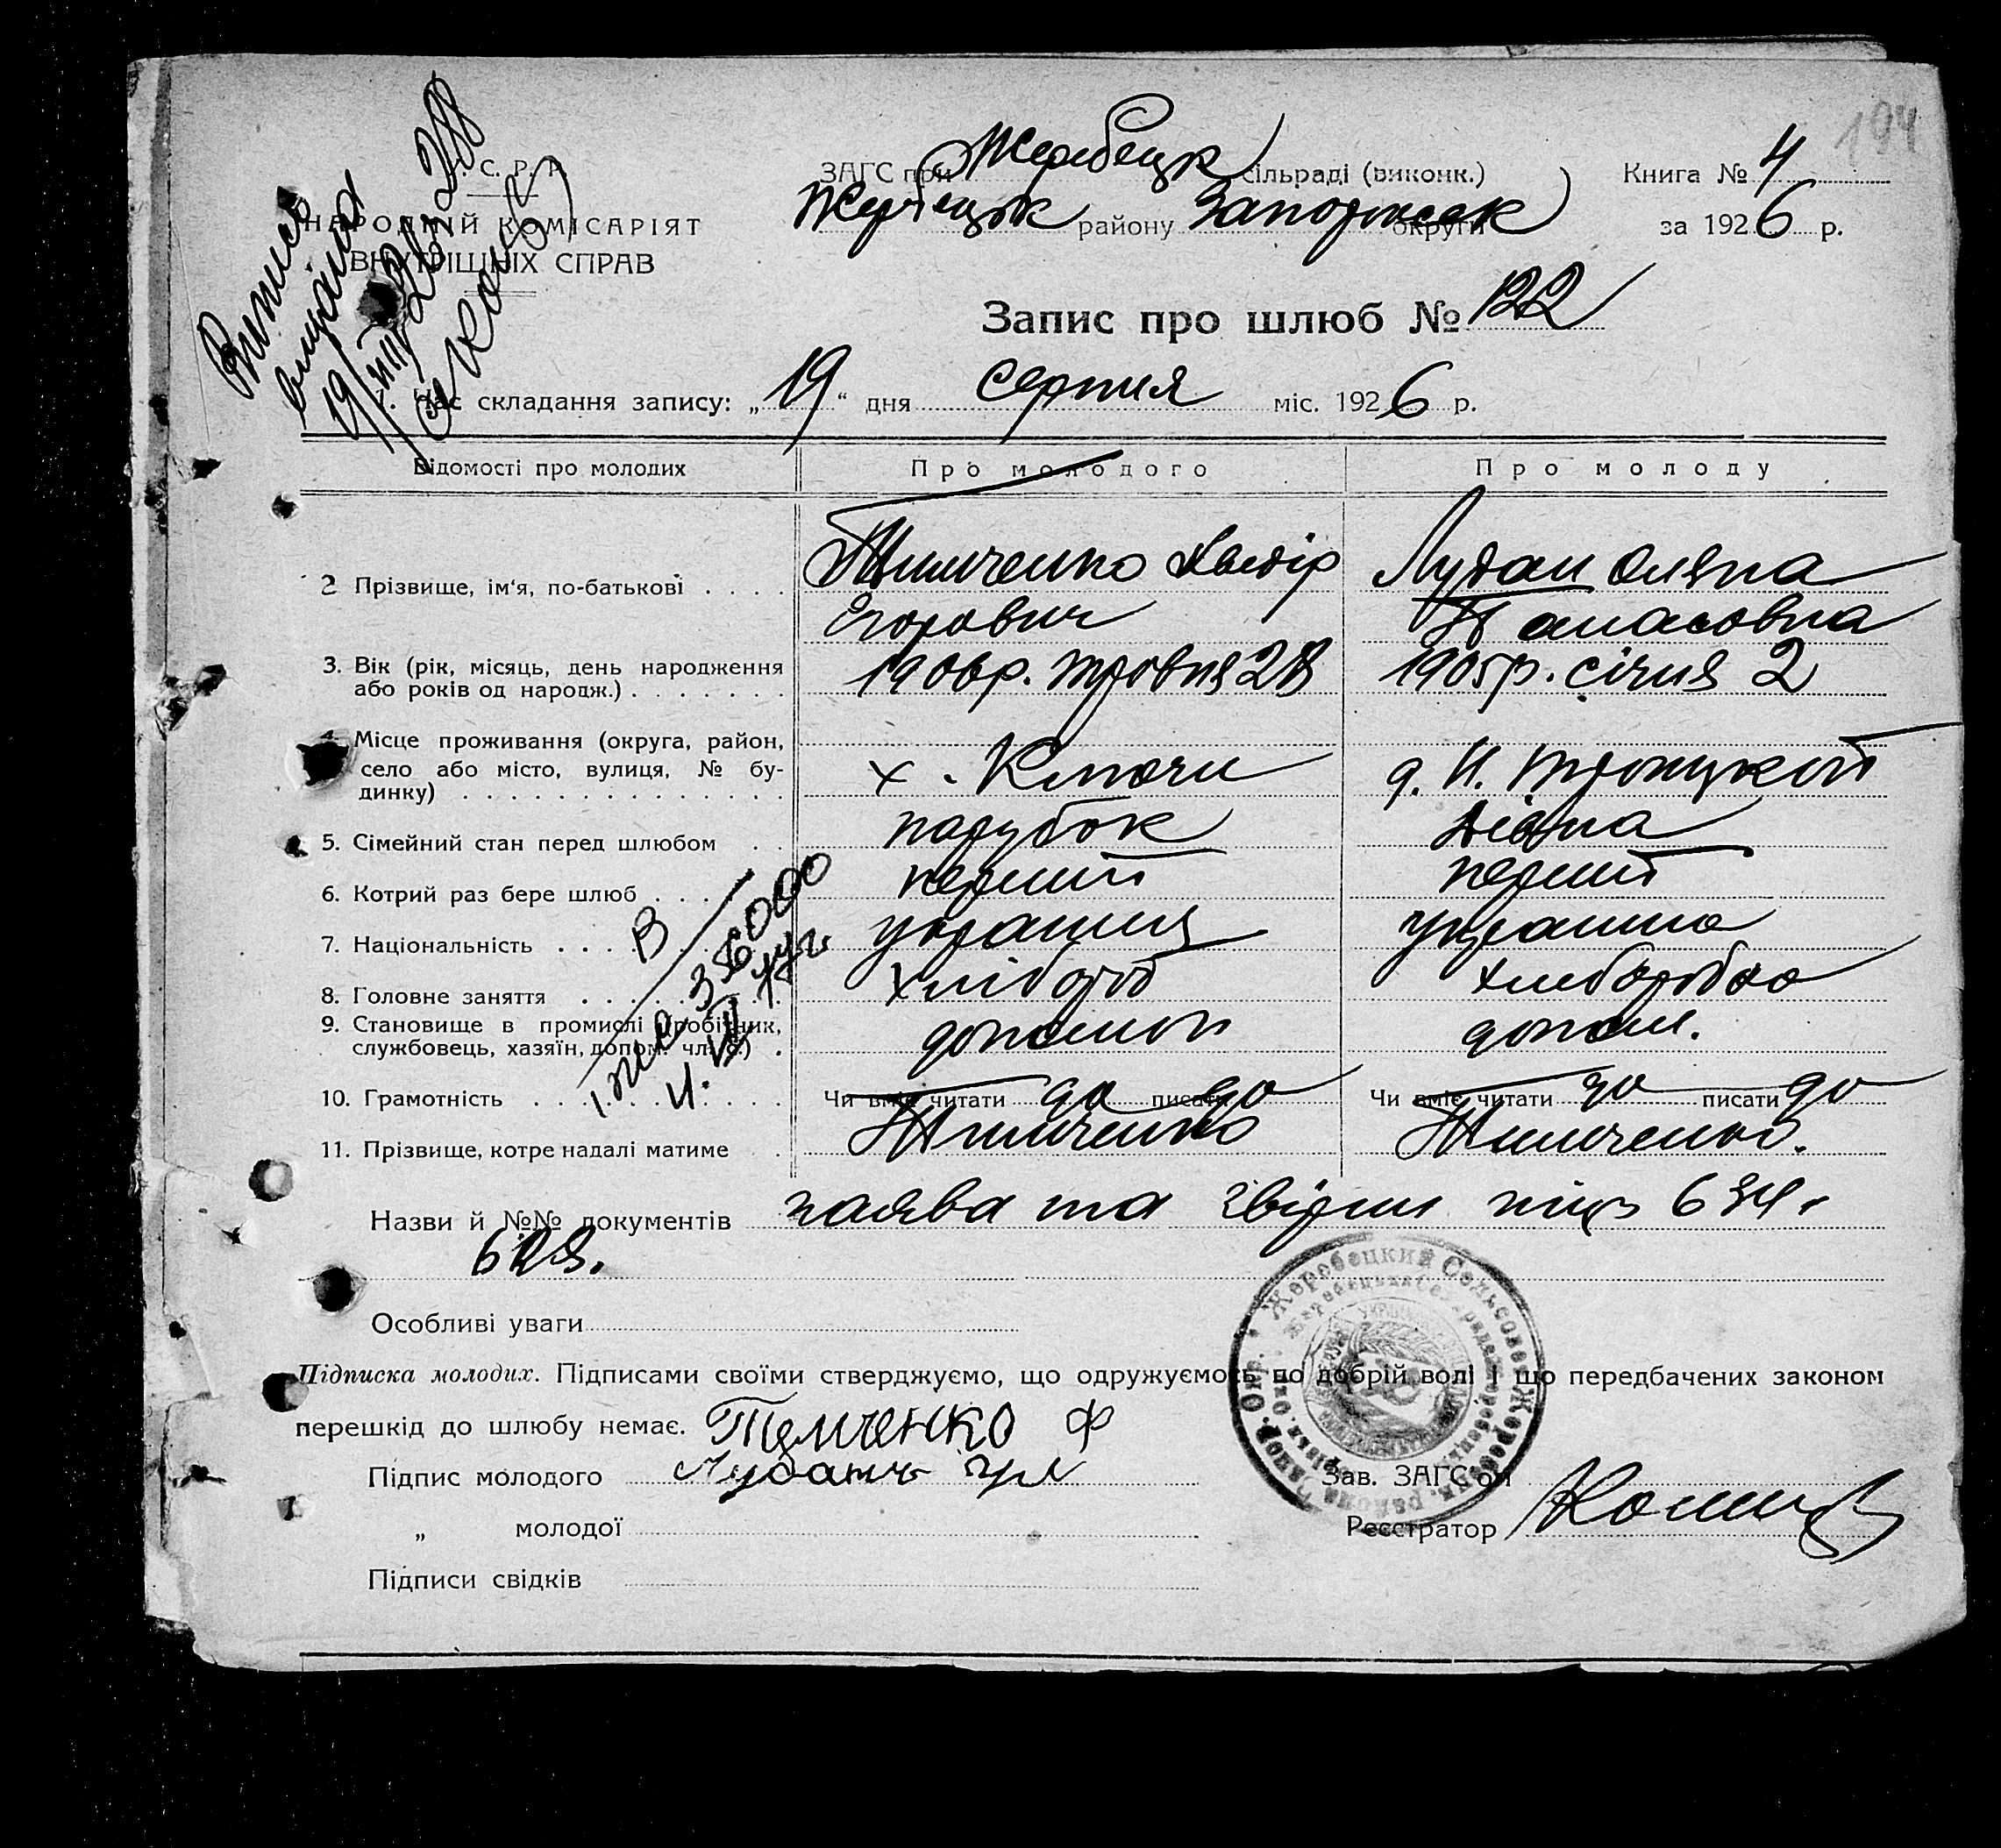 194
С. Р. Р.
НАРОДНІЙ КОМІСАРІЯТ
ВНУТРІШНІХ СПРАВ
ЗАГС при Жеребецк сільраді (виконк.)
Жеребецьк району Запоріжськ округи
Книга № 4
за 1926 р.
Выпись
выдана
Запис про шлюб № 122
Час складання запису: „19“ дня серпня міс. 1926 р.
Відомості про молодих Про молодого Про молоду
2 Прізвище, ім'я, по-батькові . . . . Тимченко Хведір Лудан Оляна
Егорович Танасовна
3. Вік (рік, місяць, день народження або років од народж.) . . . . . . . 1906р. травня 28 1905р. січня 2
4. Місце проживання (округа, район,
село або місто, вулиця, № бу-
динку) . . . . . . . . . . . . . . х. Ключи д. Н. Троицкой
5. Сімейний стан перед шлюбом . . парубок дівка
6. Котрий раз бере шлюб . . . . перший перший
7. Національність . . . . українц українка
8. Головне заняття . . . . хлібороб хлеборобка
9. Становище в промислі (робітник,
службовець, хазяїн, допом. чл. с.) . допомог допом.
10. Грамотність . . . . Чи вміє читати да писати да Чи вміє читати да писати да
11. Прізвище, котре надалі матиме . Тимченко Тимченко.
Назви й №№ документів заява та звірки 634.
Особливі уваги
Підписка молодих. Підписами своїми стверджуємо, що одружуємось по добрій волі і що передбачених законом
перешкід до шлюбу немає. Тимченко Ф
Підпис молодого Лудань
„ молодої
Зав. ЗАГС'ом
Реєстратор
Підписи свідків
Жеребецкий Сельсовет